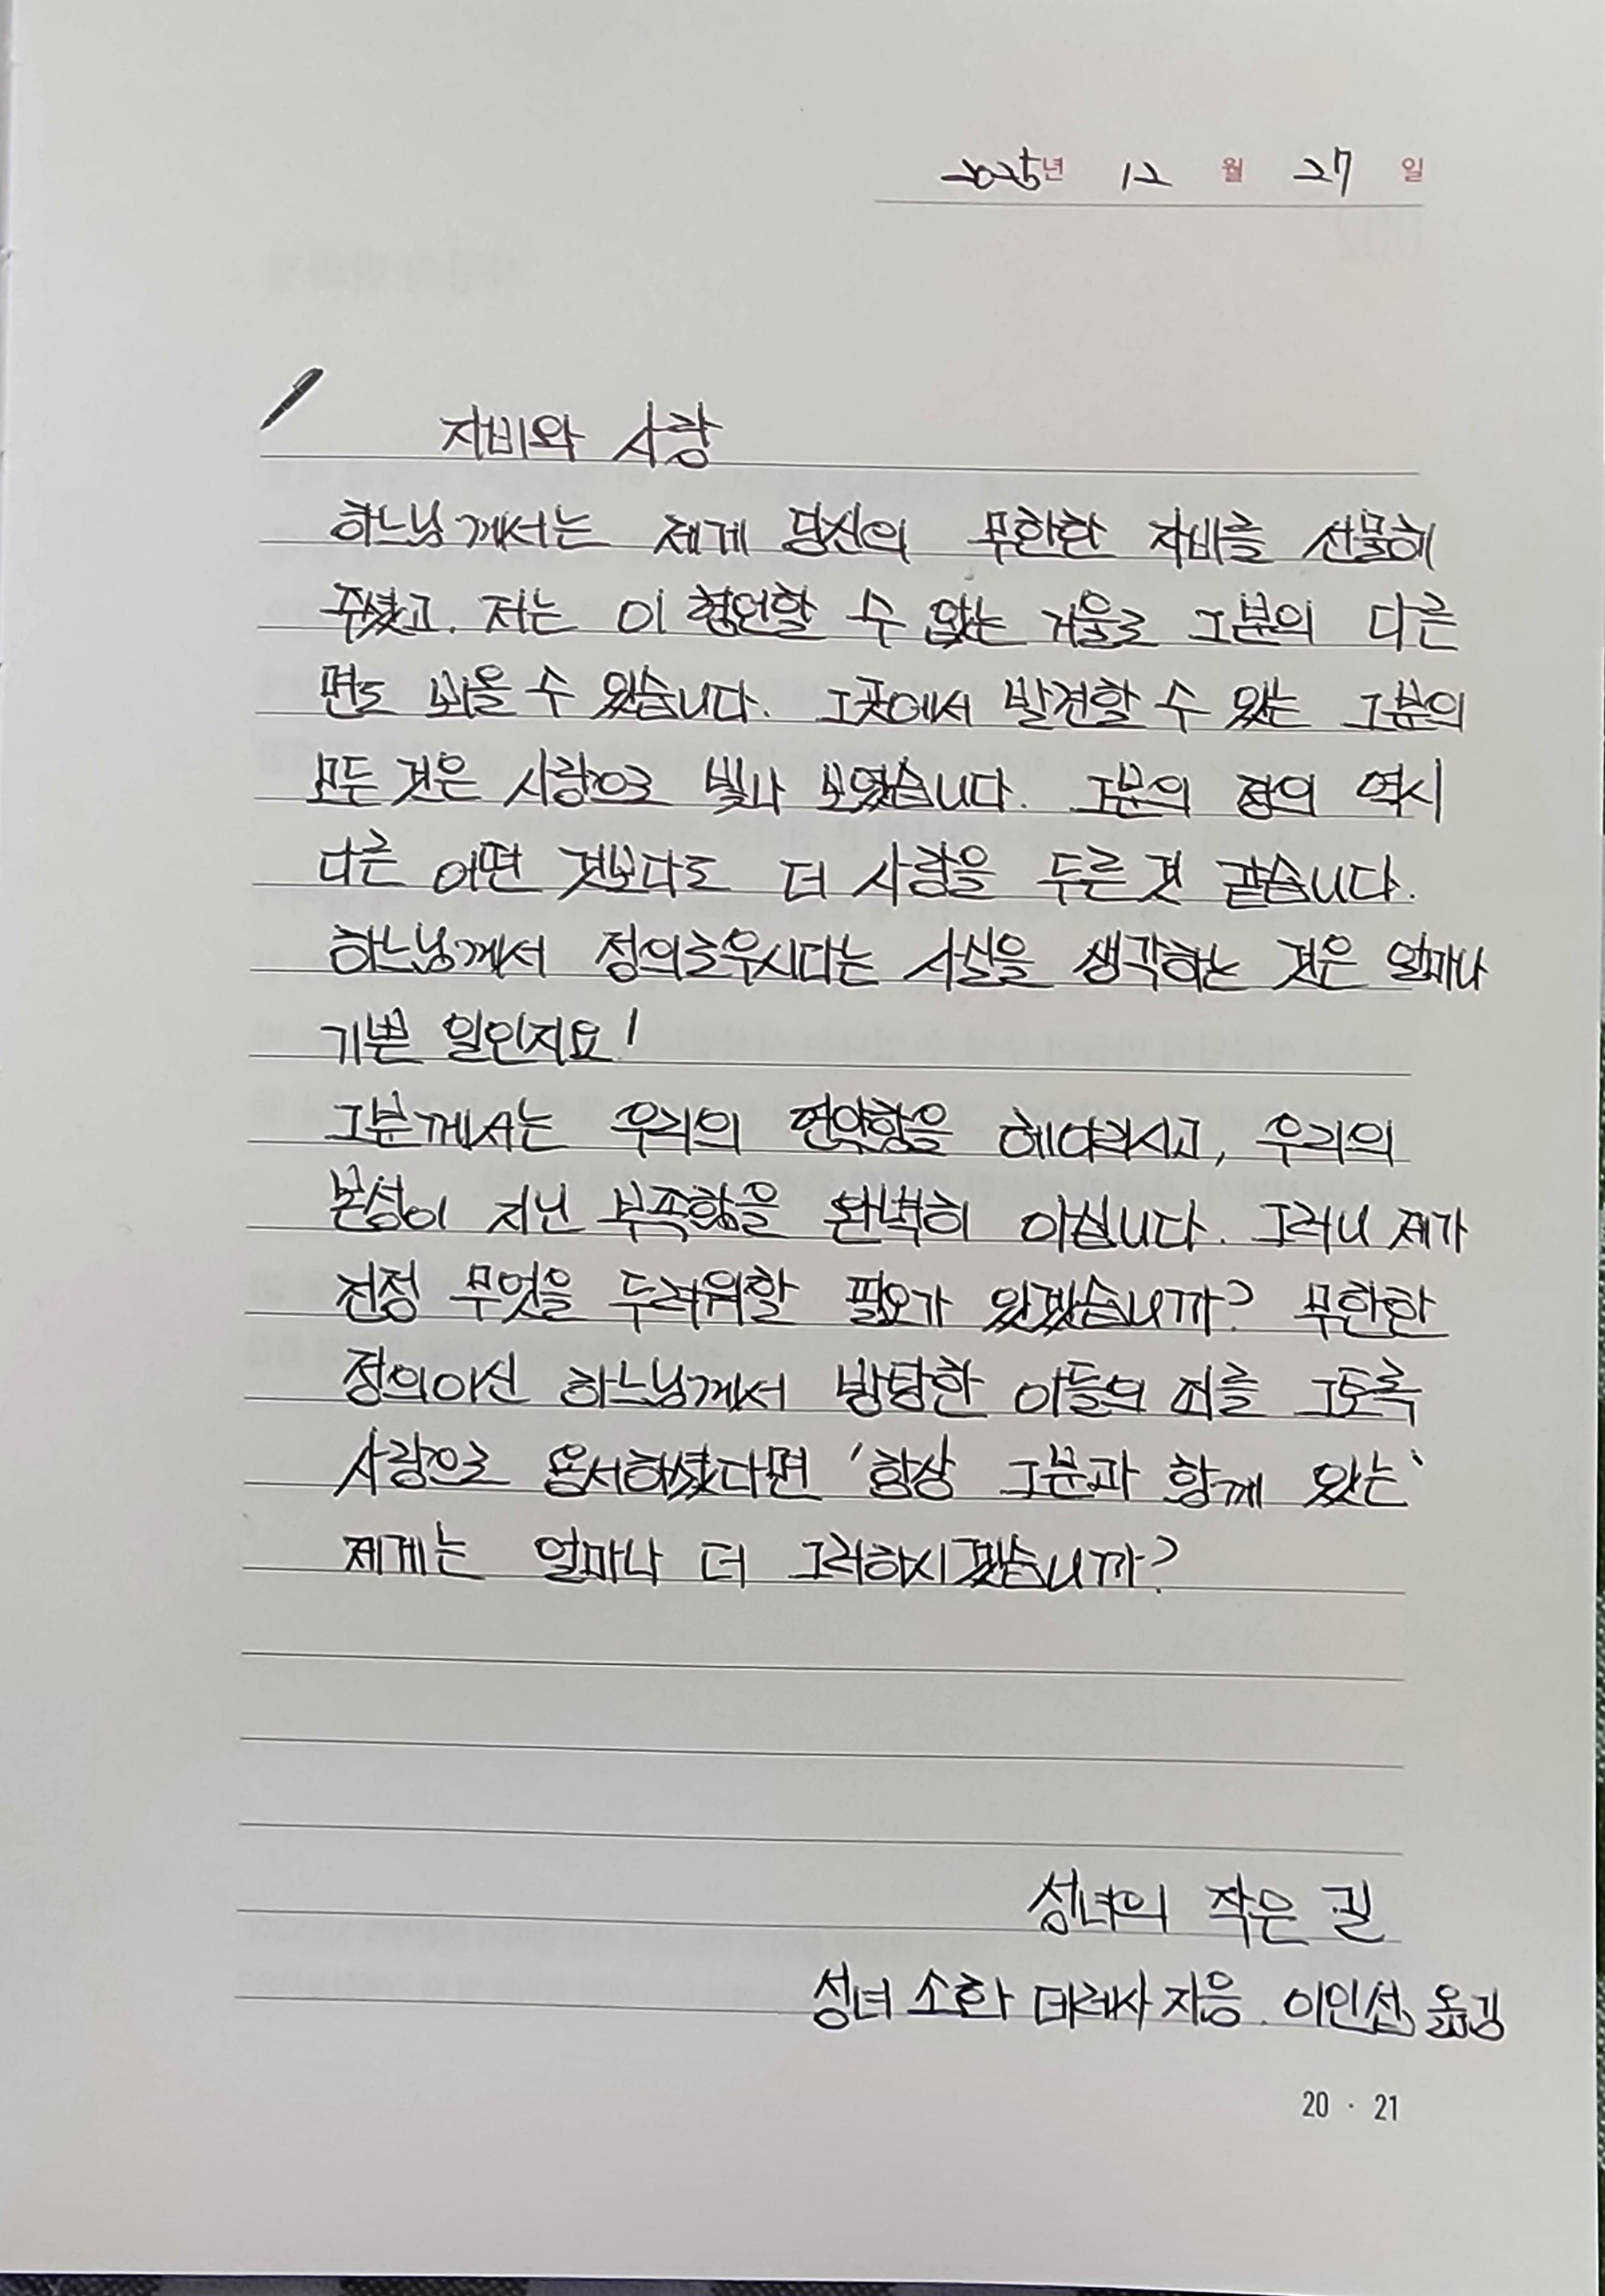 2025년 12월 27일
자비와 사랑
하느님께서는 제게 당신의 무한한 자비를 선물해
주셨고, 저는 이 형언할 수 없는 거울로 그분의 다른
면도 뵈올 수 있습니다. 그곳에서 발견할 수 있는 그분의
모든 것은 사랑으로 빛나 보였습니다. 그분의 정의 역시
다른 어떤 것보다도 더 사랑을 두른 것 같습니다.
하느님께서 정의로우시다는 사실을 생각하는 것은 얼마나
기쁜 일인지요!
그분께서는 우리의 연약함을 헤아리시고, 우리의
본성이 지닌 부족함을 완벽히 아십니다. 그러니 제가
진정 무엇을 두려워할 필요가 있겠습니까? 무한한
정의이신 하느님께서 방탕한 아들의 죄를 그토록
사랑으로 용서하셨다면 '항상 그분과 함께 있는'
제게는 얼마나 더 그러하시겠습니까?
성녀의 작은 길
성녀 소화 데레사 지음. 이인섭 옮김
20 · 21